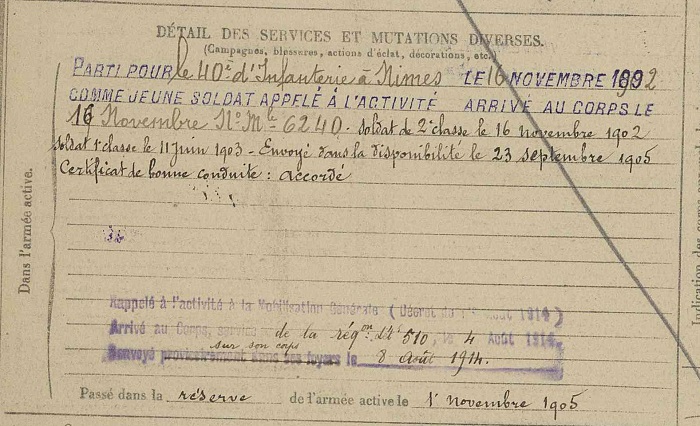 DÉTAIL DES SERVICES ET MUTATIONS DIVERSES.
(Campagnes, blessures, actions d'éclat, décorations, etc.)
PARTI POUR le 40e d'Infanterie à Nîmes LE 16 NOVEMBRE 1902
COMME JEUNE SOLDAT APPELÉ À L'ACTIVITÉ ARRIVÉ AU CORPS LE
16 Novembre No Mle 6240. soldat de 2e classe le 16 novembre 1902
soldat 1e classe le 11 juin 1903 - Envoyé dans la disponibilité le 23 septembre 1905
Certificat de bonne conduite : accordé
Dans l'armée active.
Rappelé à l'activité à la Mobilisation Générale (Décret du 1er Août 1914)
Arrivé au Corps, de la rég.on 510, le 4 Août 1914
sur son corps
Renvoyé provisoirement dans ses foyers le 8 Août 1914.
Passé dans la réserve de l'armée active le 1 novembre 1905